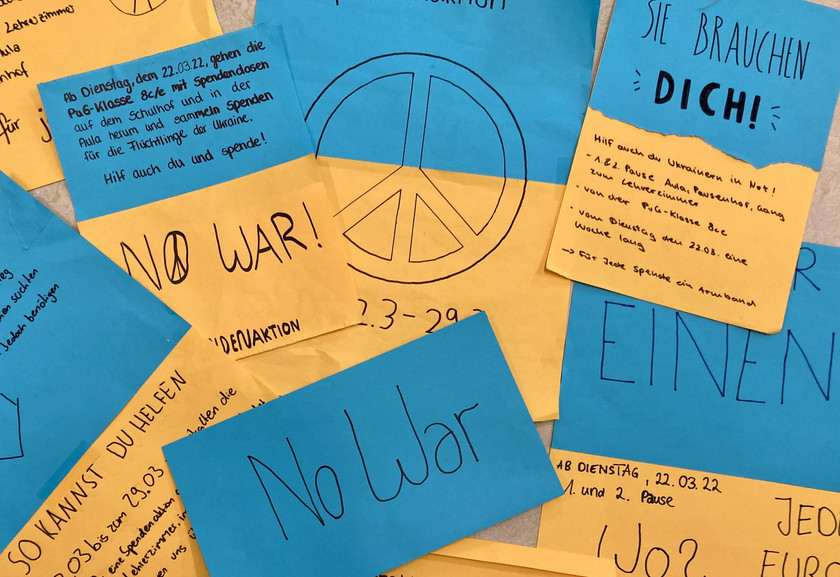 Lehrerzimmer
für
Ab Dienstag, dem 22.03.22, gehen die
PuG-Klasse 8c/e mit Spendendosen
auf dem Schulhof und in der
Aula herum und sammeln spenden
für die Flüchtlinge der Ukraine.
Hilf auch du und spende!
NO WAR!
DENAKTION
2.3-29.
SIE BRAUCHEN
DICH!
Hilf auch du Ukrainern in Not!
- 1.&2. Pause Aula, Pausenhof, Gang
zum Lehrerzimmer
- von der PuG-Klasse 8cc
- vom Dienstag den 22.03. eine
Woche lang
→ Für Jede Spende ein Armband
R
EINEN
AB DIENSTAG, 22.03.22
1. und 2. Pause
JED
WO?
EURO
suchten
Jedoch benötigen
SO KANNST DU HELFEN
.03 bis zum 29.03
eine Spendenaktion
No War